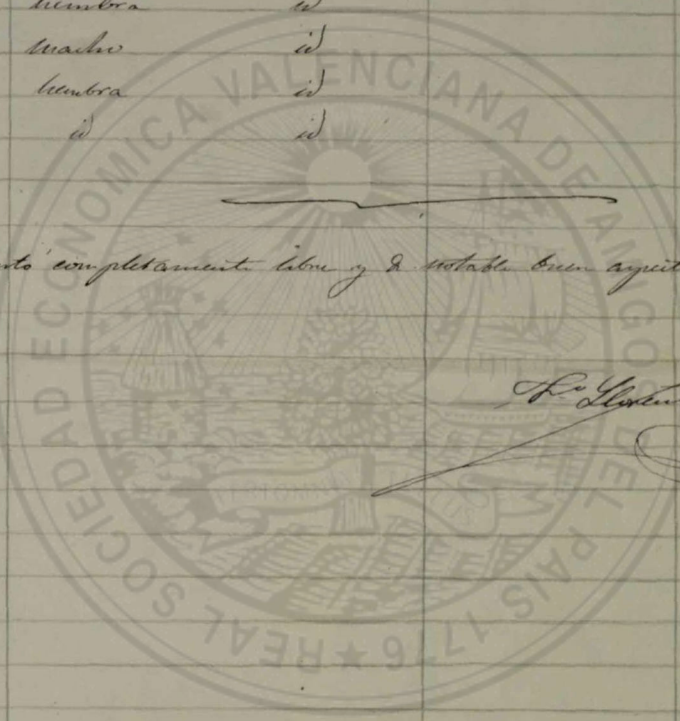 hembra id
macho id
hembra id
id id
completamente libre y de notable buen
Lloren
REAL SOCIEDAD ECONOMICA VALENCIANA DE AMIGOS DEL PAIS 1776